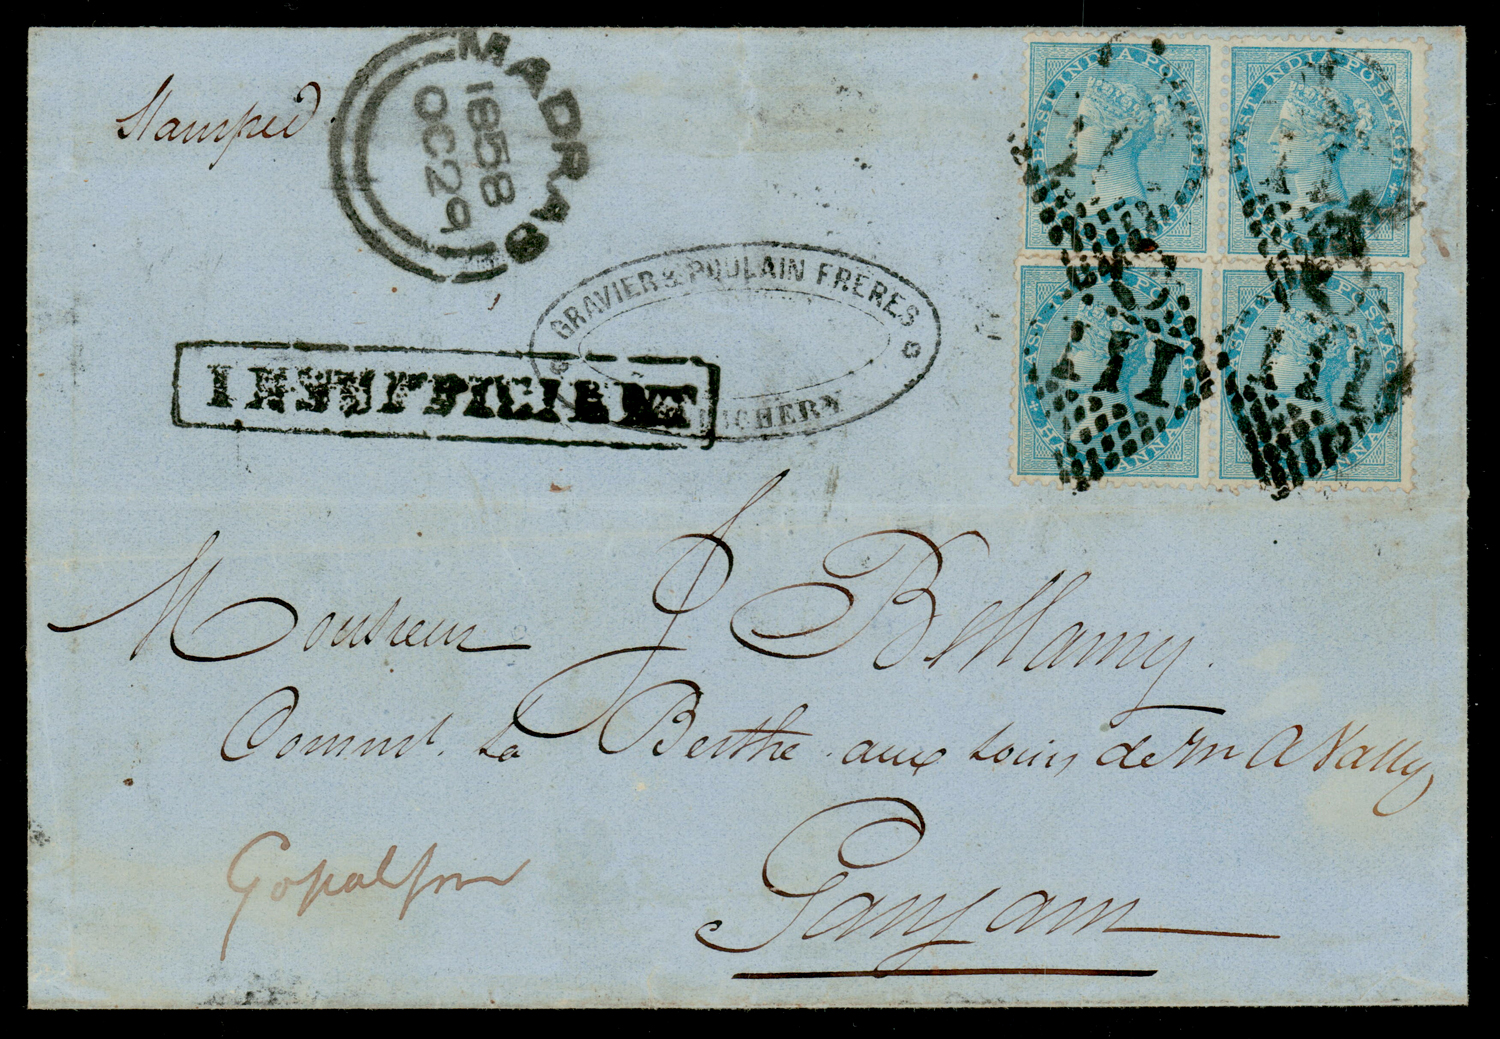 Stamped
MADRAS
1858
OC 29
GRAVIER & POULAIN FRERES
INSUFFICIENT
EAST INDIA POSTAGE
EAST INDIA POSTAGE
EAST INDIA POSTAGE
EAST INDIA POSTAGE
HALF ANNA
HALF ANNA
Monsieur J Bellamy.
Commt. La Berthe aux soins de Mr A Vally
Gopalpur
Ganjam